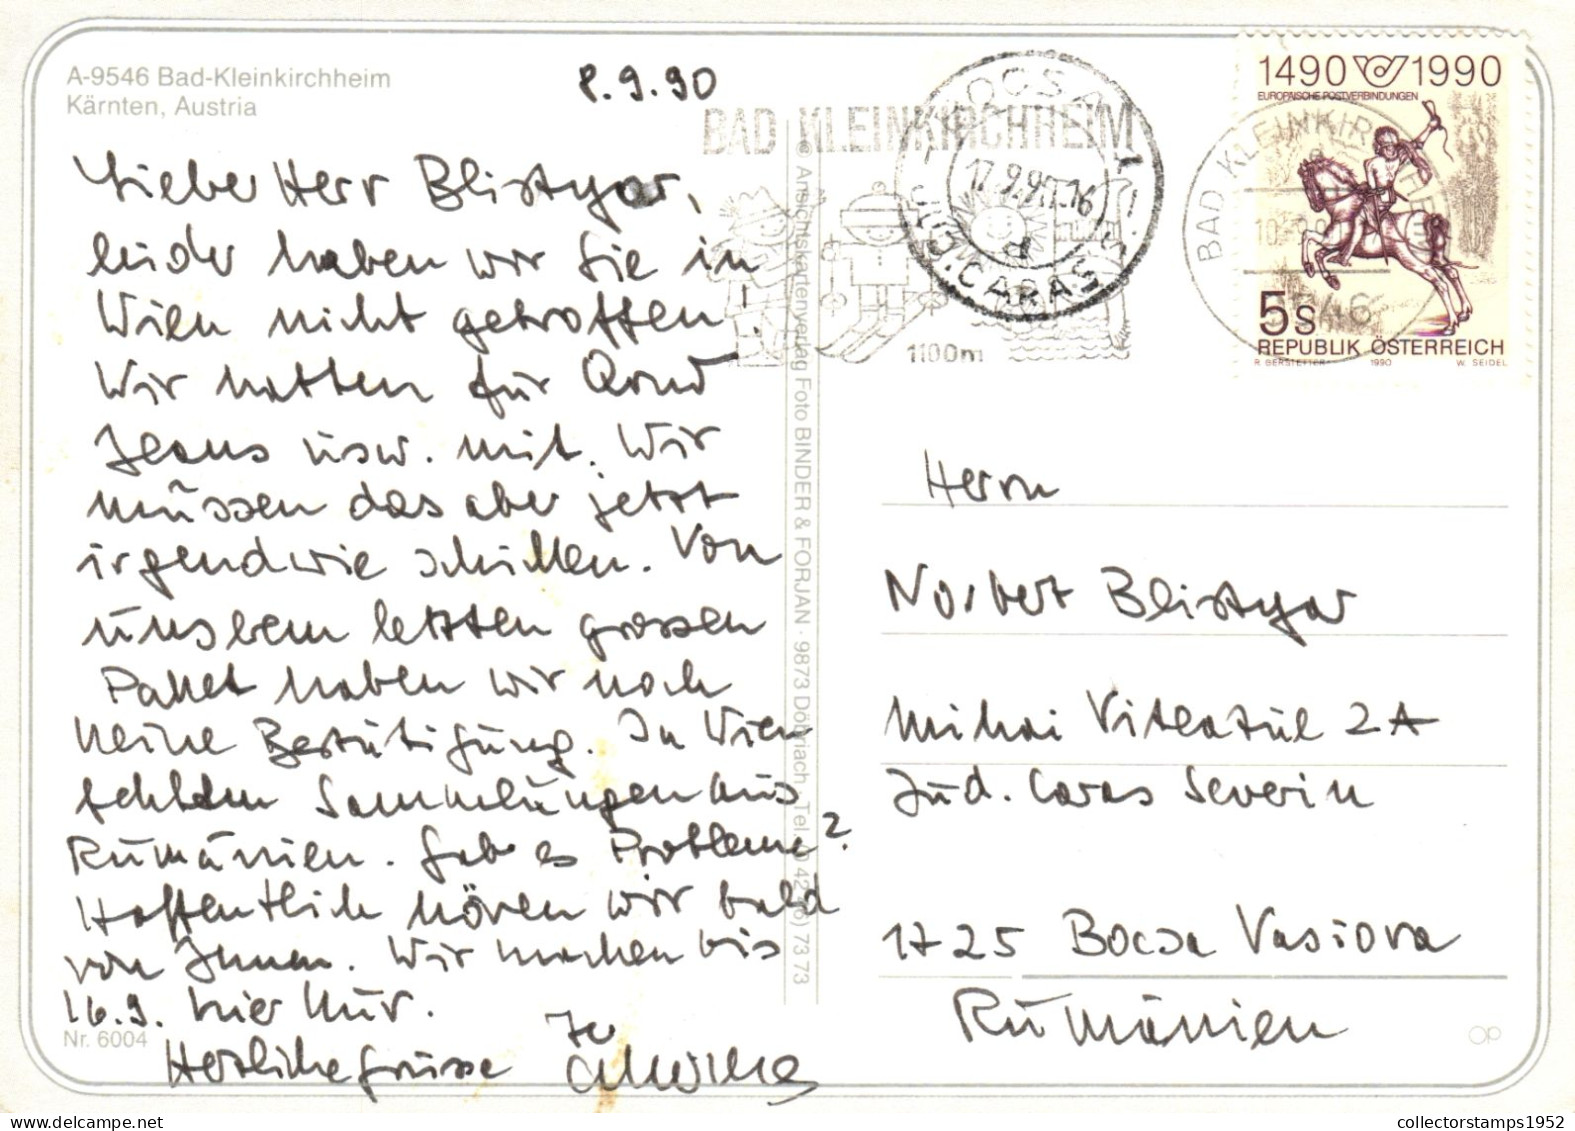 A-9546 Bad-Kleinkirchheim
Kärnten, Austria
8.9.90
Lieber Herr Blistyar,
leider haben wir Sie in
Wien nicht getroffen!
Wir hatten für Arnd
Jeans usw. mit. Wir
müssen das aber jetzt
irgendwie schicken. Von
unserem letzten grossen
Paket haben wir noch
keine Bestätigung. In Wien
fehlten Sammlungen aus
Rumänien. Gab es Probleme?
Hoffentlich hören wir bald
von Ihnen. Wir machen bis
16.9. hier Kur.
Herzliche Grüsse Ihr
Nr. 6004
© Ansichtskartenverlag Foto BINDER & FORJAN · 9873 Döbriach · Tel. 0 42 46) 73 73
BAD KLEINKIRCHHEIM
1100m
BOCSA
17.9.90.16
d
JUD. CARAS S
BAD KLEINKIRCHHEIM
9546
1490 1990
EUROPÄISCHE POSTVERBINDUNGEN
5S
REPUBLIK ÖSTERREICH
R. GERSTETTER 1990 W. SEIDEL
Herrn
Norbert Blistyar
Mihai Viteazul 2A
Jud. Caras Severin
1725 Bocsa Vasiova
Rumänien
OP
collectorstamps1952